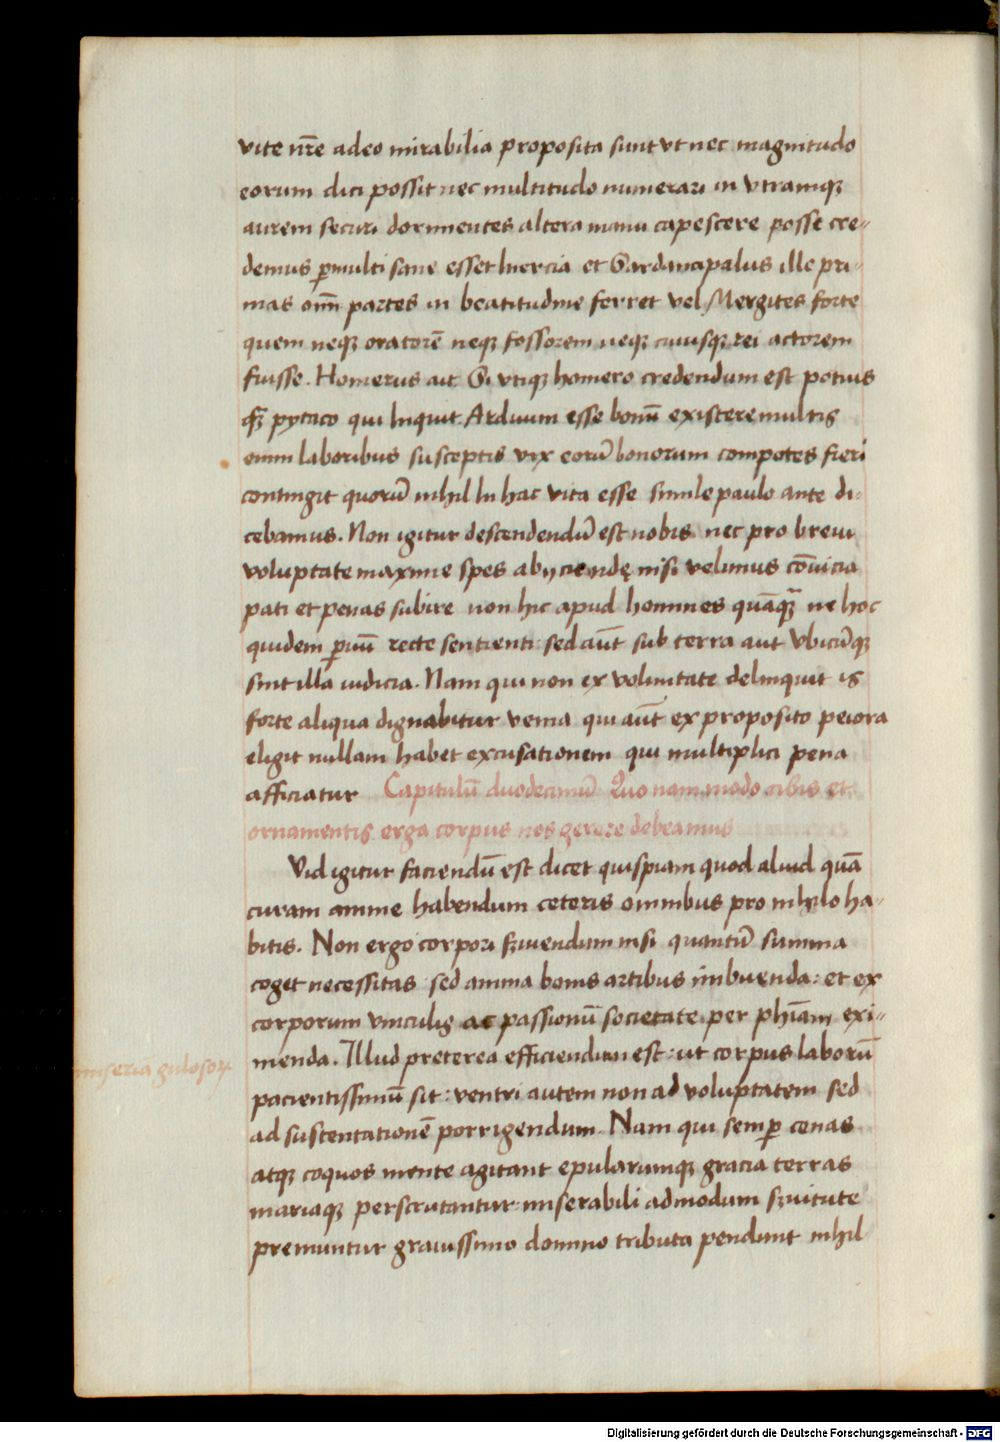 vite nr̄e adeo mirabilia proposita sunt vt nec magnitudo
eorum dici possit nec multitudo numerari in vtramqꝫ
aurem securi dormientes altera manu capescere posse cre-
demus ꝑmulti sane esset Inercia et Sardanapalus ille pri-
mas oīm partes in beatitudine ferret vel Mergites forte
quem neqꝫ oratorē neqꝫ fossorem neqꝫ cuiusqꝫ rei actorem
fuisse. Homerus ait Si vtiqꝫ homero credendum est potius
qꝫ pytaco qui Inquit. Arduum esse bonū existere multis
enim laboribus susceptis vix eorū bonorum compotes fieri
contingit quorū nihil In hac vita esse simile paulo ante di-
cebamus. Non igitur descendendū est nobis nec pro breui
voluptate maxime spes abijciendę nisi velimus cōuicia
pati et penas subire non hic apud homines quāqꝫ ne hoc
quidem ꝑuū recte sentienti: sed aūt sub terra aut vbicūqꝫ
sint illa iudicia. Nam qui non ex voluntate delinquit is
forte aliqua dignabitur venia qui aūt ex proposito peiora
eligit nullam habet excusationem qui multiplici pena
afficiatur Capitulū duodecimū Quo nam modo cibis et
ornamentis erga corpus nos gerere debeamus
Vid igitur faciendū est dicet quispiam quod aliud quā
curam anime habendum ceteris omnibus pro nihilo ha-
bitis. Non ergo corpori sꝫuiendum nisi quantū summa
coget necessitas: sed anima bonis artibus imbuenda: et ex
corporum vinculis ac passionū societate per phīam exi-
menda. Illud preterea efficiendum est: ut corpus laborū
pacientissimū sit: ventri autem non ad voluptatem sed
ad sustentationē porrigendum. Nam qui semꝑ cenas
miseria gulosoꝝ
atqꝫ coquos mente agitant epularumqꝫ gracia terras
mariaqꝫ perscrutantur: miserabili admodum sꝫuitute
premuntur grauissimo domino tributa pendunt nihil
Digitalisierung gefördert durch die Deutsche Forschungsgemeinschaft - DFG